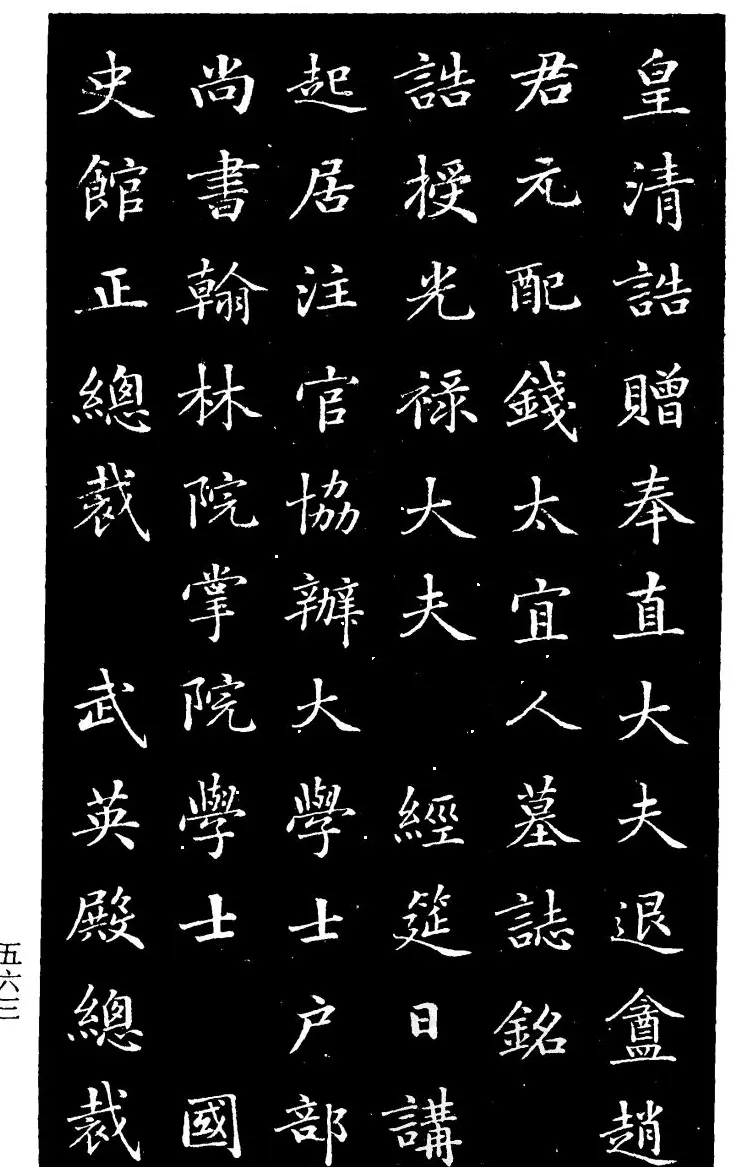 皇清誥贈奉直大夫退盦趙
君元配錢太宜人墓誌銘
誥授光祿大夫 經筵日講
起居注官協辦大學士户部
尚書翰林院掌院學士 國
史館正總裁 武英殿總裁
五六三